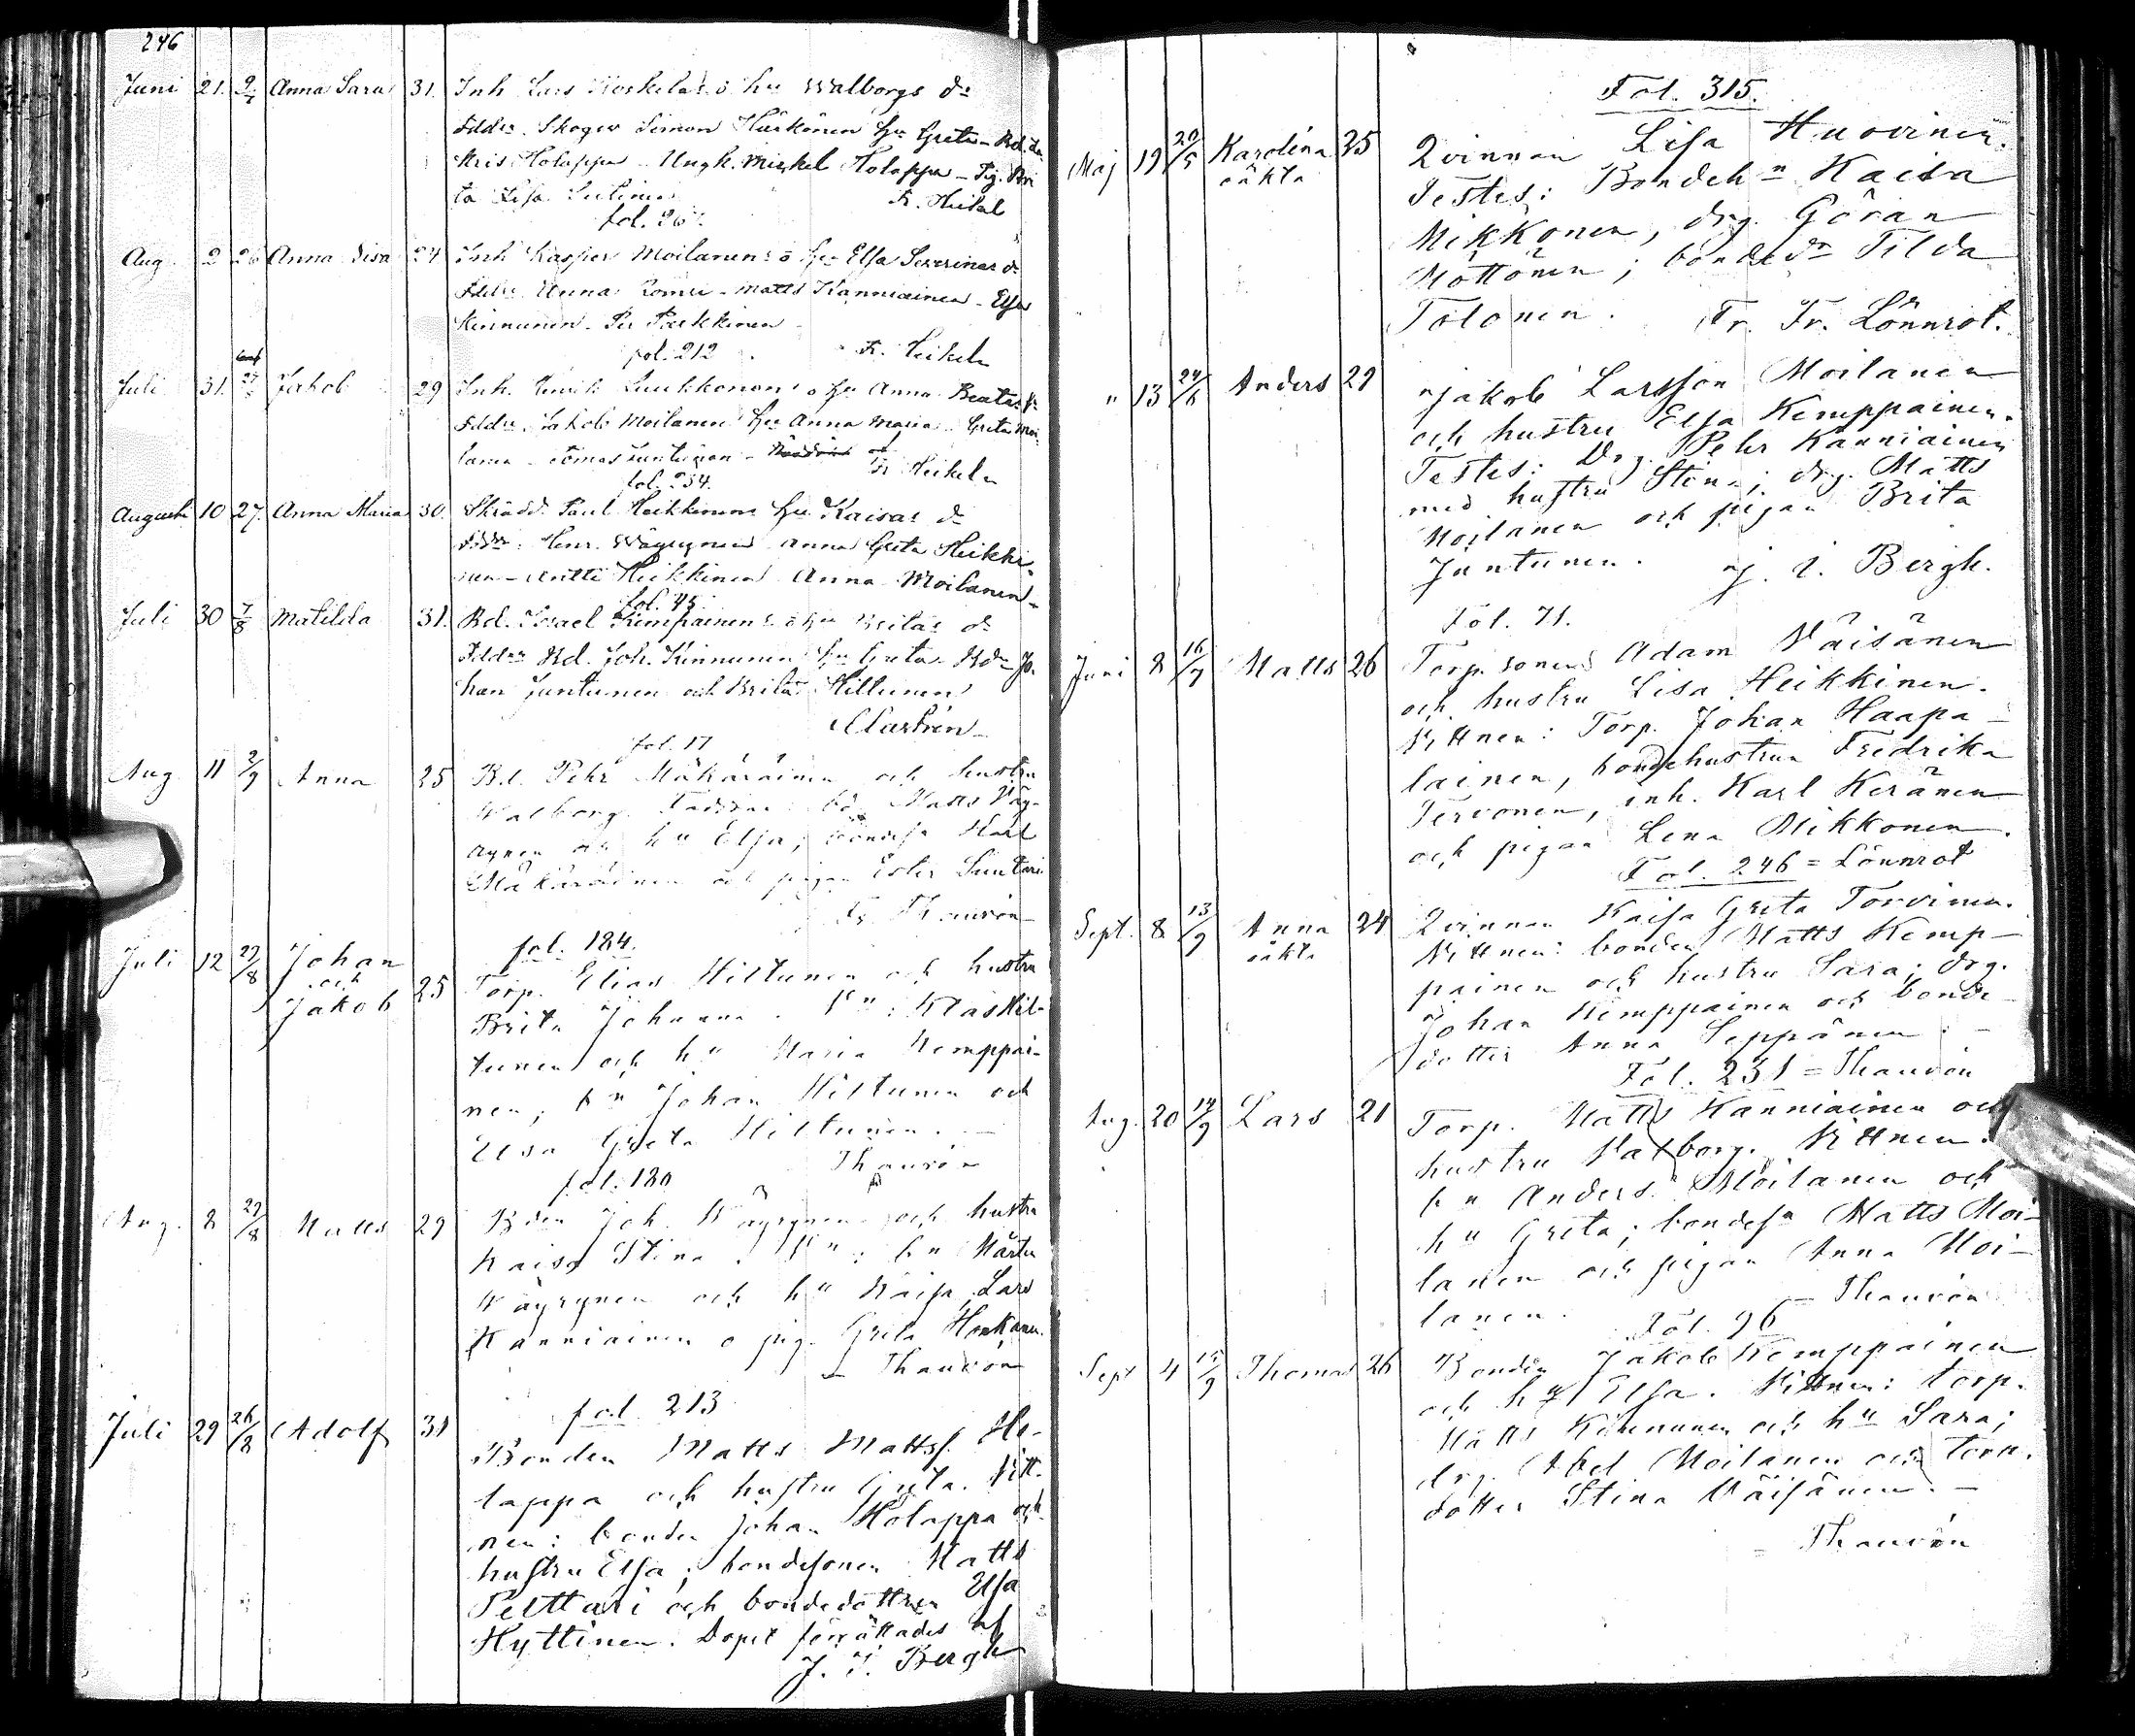 246
Juni 21. 9/7 Anna Sara 31. Inh Lars Koskelas o hu Walborgs dr
Fddr. Skogv Simon Härkönen hu Greta - Bd. dr
Kris Holappa - Ungk. Mickel Holappa - Pig. Bri
ta Lisa
Fr. Heikel
fol. 26
Aug. 2 26 Anna Lisa 24 Inh Kasper Moilanens o hu Elsa Severinas dr
Fddr. Anna - Matts Kanniainen - Elsa
Kinnunen - Per Parkkinen
fol. 212 Fr. Heikel
Juli 31. Jakob 29 Inh. Henrik Luukkonens o hu Anna Beatas
Fddr. Jakob Moilanen hu Anna Maria - Greta Moi
lanen - Tomas Juntunen -
Fr Heikel
fol. 234.
Augusti 10 27. Anna Maria 30. Skrädd. Paul Heikkinens hu Kaisas dr
Fddr. Henr. Wäyrynen Anna Greta Heikki-
nen - Antti Heikkinen Anna Moilanen -
fol. 45
Juli 30 7/8 Matilda 31. Bd. Israel Kempainens o hu Britas dr
Fddr Bd. Joh. Kinnunen hu Greta - Bdr Jo-
han Juntunen och Brita Hiltunen
Castrén
fol. 17
Aug. 11 2/9 Anna 25 Bd. Pehr Mäkäräinen och hustru
Walborg. Faddrar: bd. Matts Väy-
rynen och hu Elsa; bondes. Karl
Mäkäräinen och pigan Ester Suutari
Fr. Thauvón
fol. 184.
Juli 12 27/8 Johan
och
Jakob 25 Torp. Elias Hiltunen och hustru
Brita Johanna. Vn: Klas Hil-
tunen och hu Maria Kemppai-
nen, bn Johan Hiltunen och
Elsa Greta Hiltunen. -
Thauvón
fol. 180
Aug. 8 29/8 Matts 29 Bden Joh. Väyrynen och hustru
Kaisa Stina. Vn: bn Mårten
Wäyrynen och hu Kaisa, Lars
Kanniainen o pig. Greta Honkanen.
Thauvón
fol. 213
Juli 29 26/8 Adolf 31 Bonden Matts Mattsf. Ho-
lappa och hustru Greta. Vitt-
nen: bonden Johan Holappa och
hustru Elsa; bondesonen Matts
Pelttari och bondedottren Elsa
Hyttinen. Dopet förrättades af
J. I. Bergh
Fol. 315.
Maj 19 20/5 Karolina 35 Qvinnan Lisa Huovinen.
oäkta Testes: Bondehn Kaisa
Mikkonen, drg. Göran
Möttönen; bondedr Tilda
Tolonen. Fr. Fr. Lönnrot.
" 13 24/6 Anders 29 Jakob Larsson Moilanen
och hustru Elsa Kemppainen.
Testes: Drg. Pehr Kanniainen
med hustru Stina; drg. Matts
Moilanen och pigan Brita
Juntunen. J. I. Bergh.
Fol. 71.
Juni 8 16/7 Matts 26 Torp.sonen Adam Väisänen
och hustru Lisa Heikkinen.
Vittnen: Torp. Johan Haapa-
lainen, bondehustrun Fredrika
Tervonen, inh. Karl Keränen
och pigan Lena Mikkonen.
Fol. 246 = Lönnrot
Sept. 8 13/9 Anna 24 Qvinnan Kaisa Greta Torvinen.
oäkta Vittnen: bonden Matts Kemp-
painen och hustru Sara; drg.
Johan Kemppainen och bonde-
dotter Anna Seppänen. -
Fol. 231 = Thauvón
Aug. 20 14/9 Lars 21 Torp. Matts Kanniainen och
hustru Valborg. Vittnen:
bn Anders Moilanen och
hu Greta; bondesn Matts Moi-
lanen och pigan Anna Moi-
lanen. - Thauvón
Fol. 96
Sept 4 15/9 Thomas 26 Bonden Jakob Kemppainen
och hu Elsa. Vittnen: torp.
Matts Kinnunen och hu Sara;
drg. Abel Moilanen och torp.
dotter Stina Väisänen. -
- Thauvón